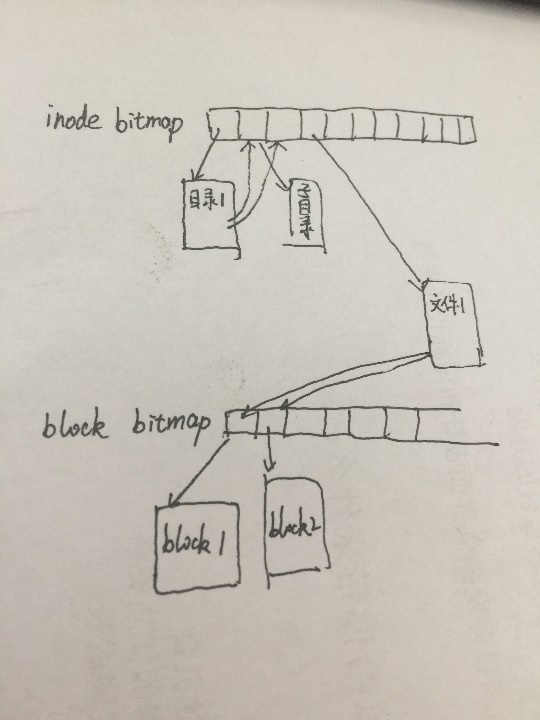 inode bitmap
目录1
子目录
文件1
block bitmap
block 1
block2